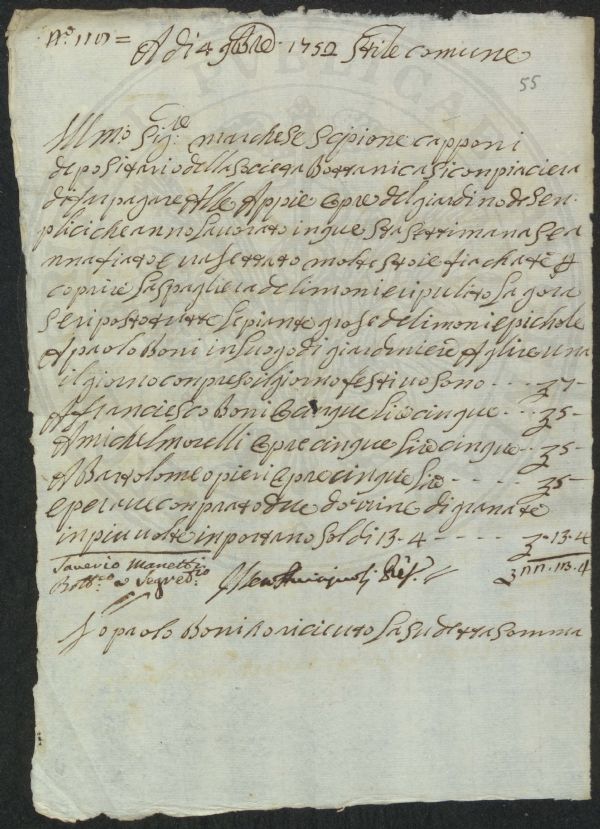 A di 4 9bre 1752 Stile comune
55
Ill mo: Sig.re marchese Scipione capponi
depositario della Società Bottanica Si conpiacera
di far pagare Alle Appie opre del giardino de Sen-
plici che anno Lavorato in que Sta Settimana Se a
nnafiato e va Settato molte Stoie fiachate p
coprire La Spagliera de limoni e ripulito La gora
Se riposto tutte Le piante grose de limoni e pichole
A paolo Boni in Luogo di giardiniere A Lire una
il giorno conpreso il giorno festivo Sono - - - £ 7 -
A franciesco Boni opre cinque Lire cinque - - £ 5 -
A michel morelli opre cinque Lire cinque - £ 5 -
A Bartolomeo pieri opre cinque Lire - - - - £ 5 -
e per aver conprato due dozzine di granate
in piu volte inportano Soldi 13. 4 - - - - £ - 13. 4
Saverio Manetti
Bott.co e Segret.rio
£ 22. 13. 4
Io paolo Boni ho ricieuto La Sudetta Somma